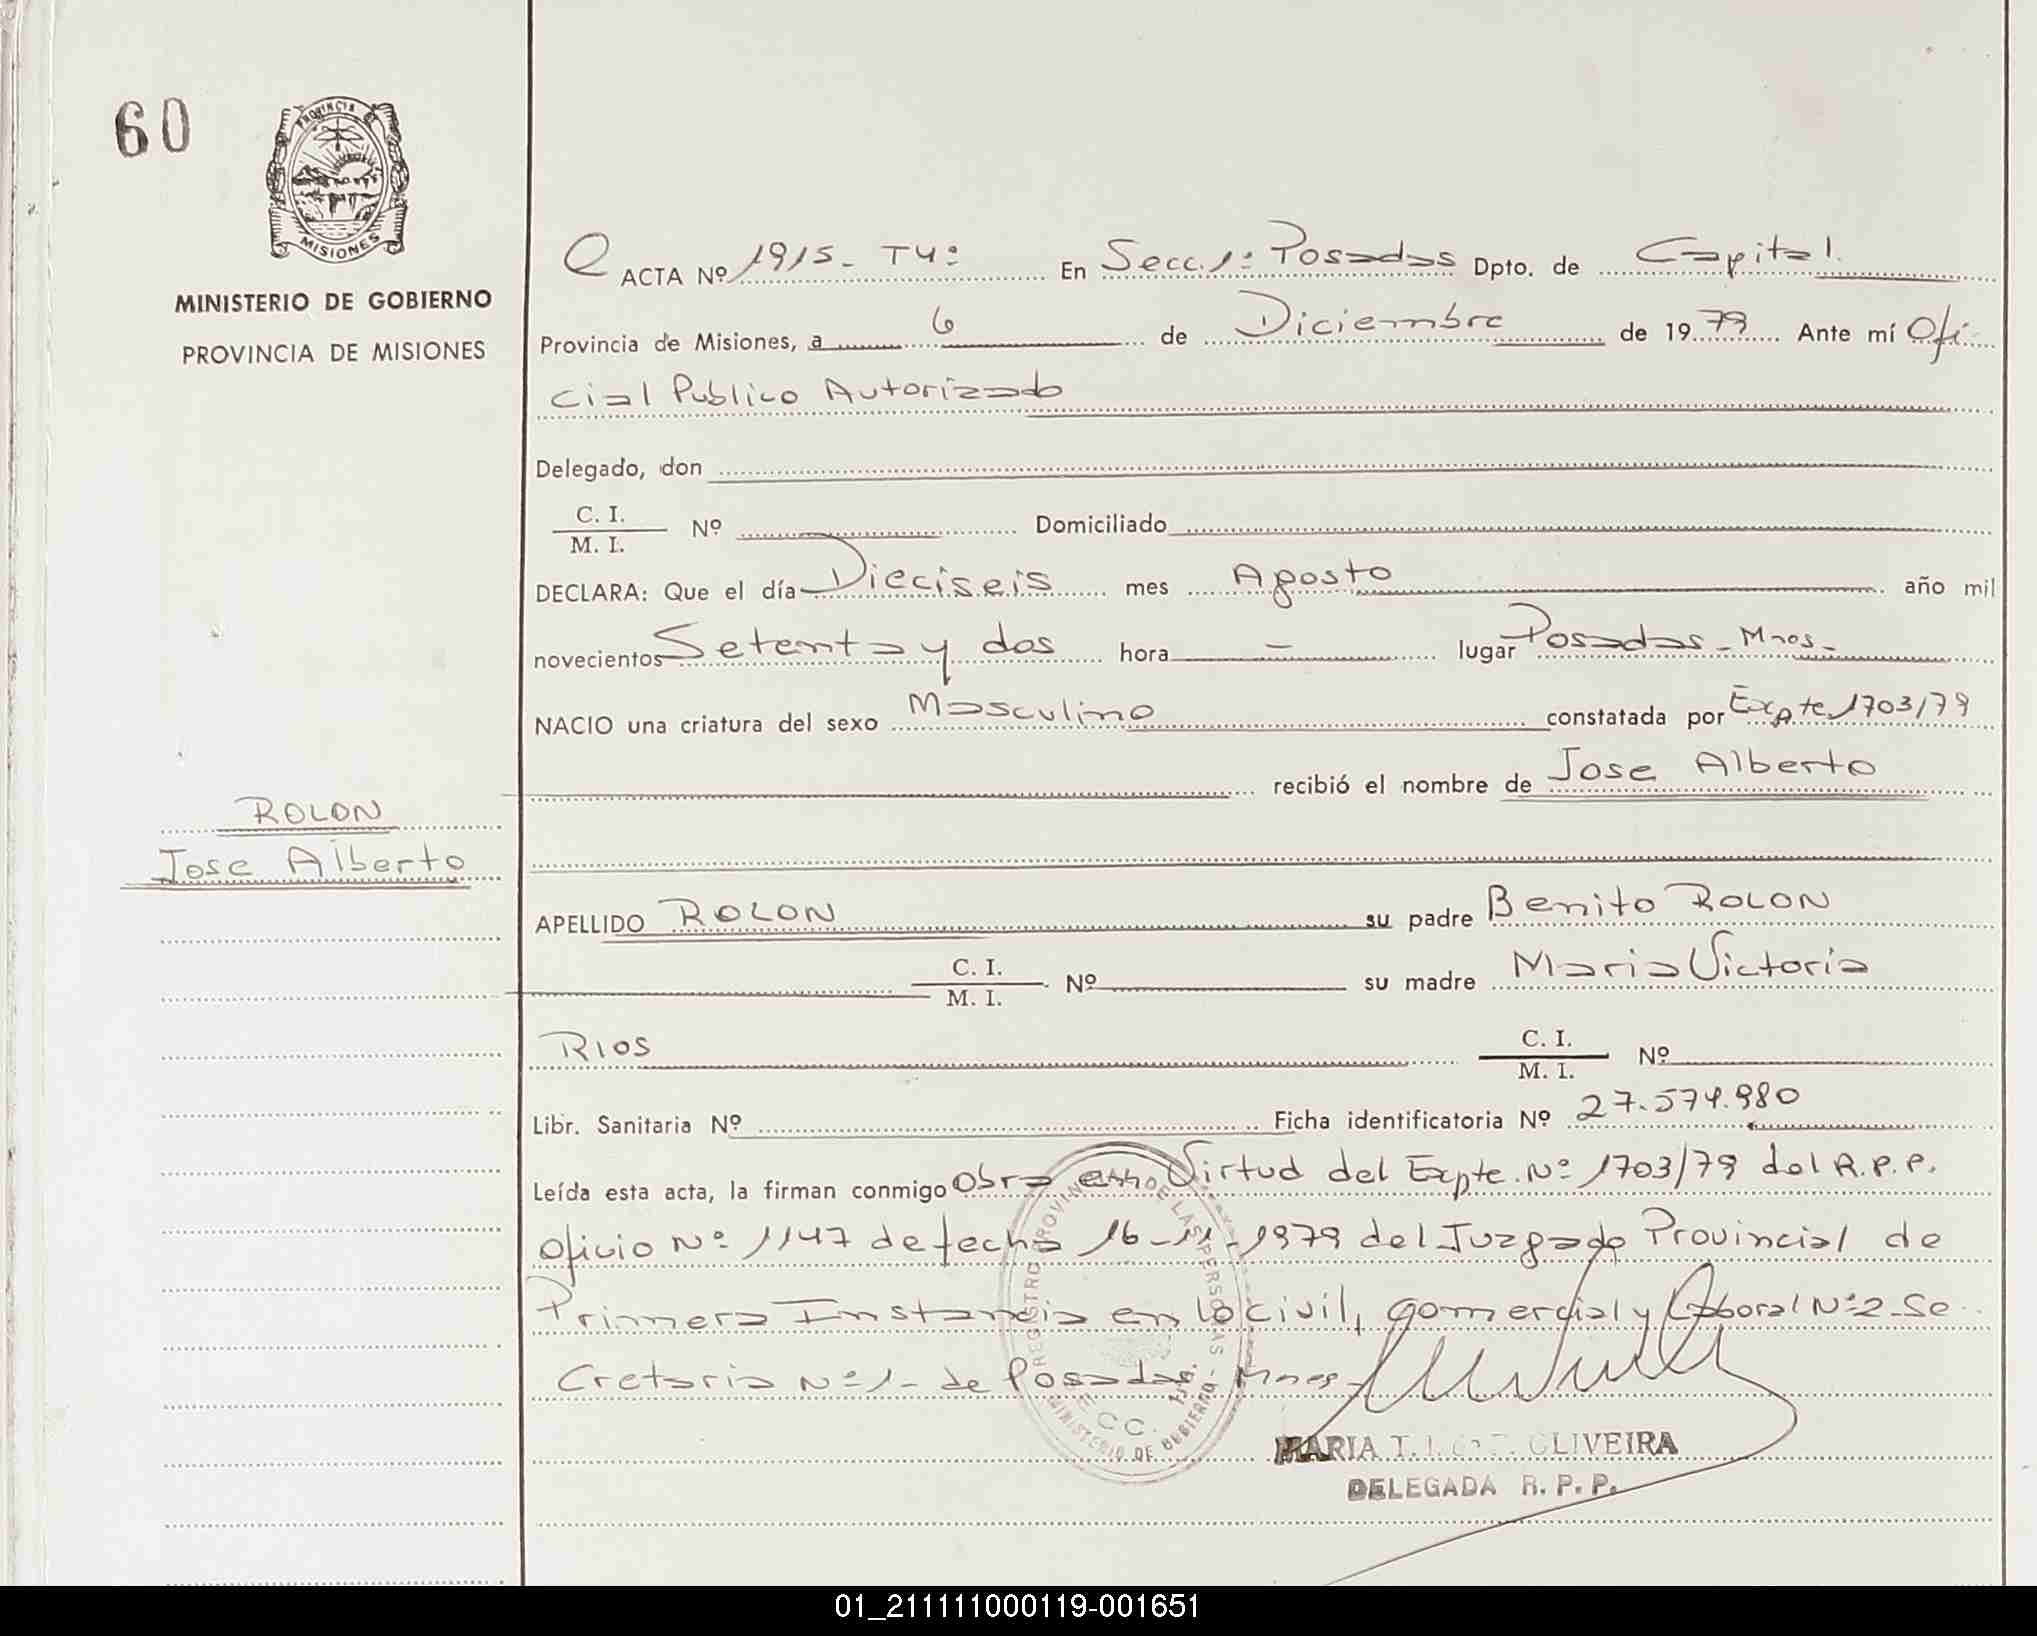 60
PROVINCIA DE
MISIONES
MINISTERIO DE GOBIERNO
PROVINCIA DE MISIONES
ACTA Nº 1915 - T4º En Secc. 1º Posadas Dpto. de Capital
Provincia de Misiones, a 6 de Diciembre de 1979 Ante mí Ofi
cial Publico Autorizado
Delegado, don
C. I.
M. I. Nº Domiciliado
DECLARA: Que el día Dieciseis mes Agosto año mil
novecientos Setenta y dos hora - lugar Posadas - Mnes -
NACIO una criatura del sexo Masculino constatada por Expte 1703/79
recibió el nombre de Jose Alberto
ROLON
Jose Alberto
APELLIDO ROLON su padre Benito ROLON
C. I.
M. I. Nº su madre Maria Victoria
RIOS C. I.
M. I. Nº
Libr. Sanitaria Nº Ficha identificatoria Nº 27.574.980
Leída esta acta, la firman conmigo Obra en Virtud del Expte. Nº 1703/79 del R.P.P.
oficio Nº 1147 de fecha 16-11-1979 del Juzgado Provincial de
Primera Instancia en lo civil, comercial y Laboral Nº 2 - Se
cretaria Nº 1 - de Posadas Mnes -
REGISTRO PROVINCIAL DE LAS PERSONAS
MINISTERIO DE GOBIERNO
MARIA T. OLIVEIRA
DELEGADA R. P. P.
01_211111000119-001651